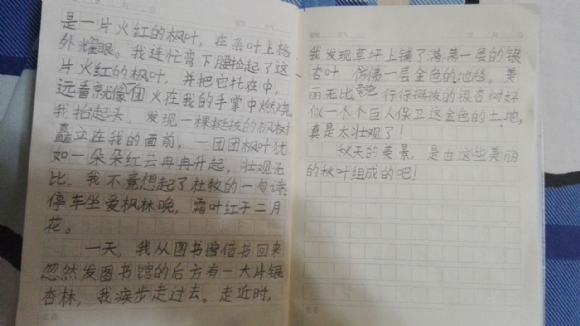 是一片火红的枫叶，在杂叶上格
外耀眼。我连忙弯下腰捡起了这
片火红的枫叶，并把它托在中，
远看就像团火在我的手掌中燃烧。
我抬起头，发现一棵挺拔的枫树
矗立在我的面前，一团团枫叶犹
如一朵朵红云冉冉升起，壮观无
比。我不竟想起了杜牧的一句诗
停车坐爱枫林晚，霜叶红于二月
花。
一天，我从图书馆借书回来
忽然发图书馆的后方有一大片银
杏林，我疾步走过去。走近时，
我发现草坪上铺了满满一层的银
杏叶，仿佛一层金色的地毯，美
丽无比，行行挺拔的银杏树好
似一个个巨人保卫这金色的土地，
真是太壮观了！
秋天的美景，是由这些美丽
的秋叶组成的吧！